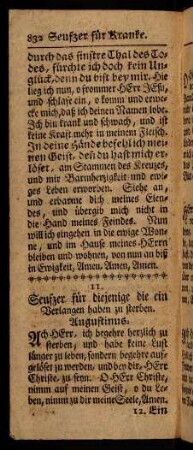 832 Seufzer für Kranke.
durch das finstre Thal des To-
des, fürchte ich doch kein Un-
glück, denn du bist bey mir. Hie
lieg ich nun, o frommer HErr JEsu,
und schlafe ein, o komm und erwe-
cke mich, daß ich deinen Namen lobe.
Jch bin krank und schwach, und ist
keine Kraft mehr in meinem Fleisch.
Jn deine Hände befehl ich mei-
nen Geist, den du hast mich er-
löset, am Stammen des Kreuzes,
und mir Barmherzigkeit und ewi-
ges Leben erworben. Siehe an,
und erbarme dich meines Elen-
des, und übergib mich nicht in
die Hand meines Feindes. Nun
will ich eingehen in die ewige Won-
ne, und im Hause meines HErrn
bleiben und wohnen, von nun an biß
in Ewigkeit, Amen, Amen, Amen.
11.
Seufzer für diejenige die ein
Verlangen haben zu sterben.
Augustinus.
Ach HErr, ich begehre herzlich zu
sterben, und habe keine Lust
länger zu leben, sondern begehre auf-
gelöset zu werden, und bey dir, HErr
Christe, zu seyn. O HErr Christe,
nimm auf meinen Geist, o du Le-
ben, nimm zu dir meine Seele, Amen.
12. Ein